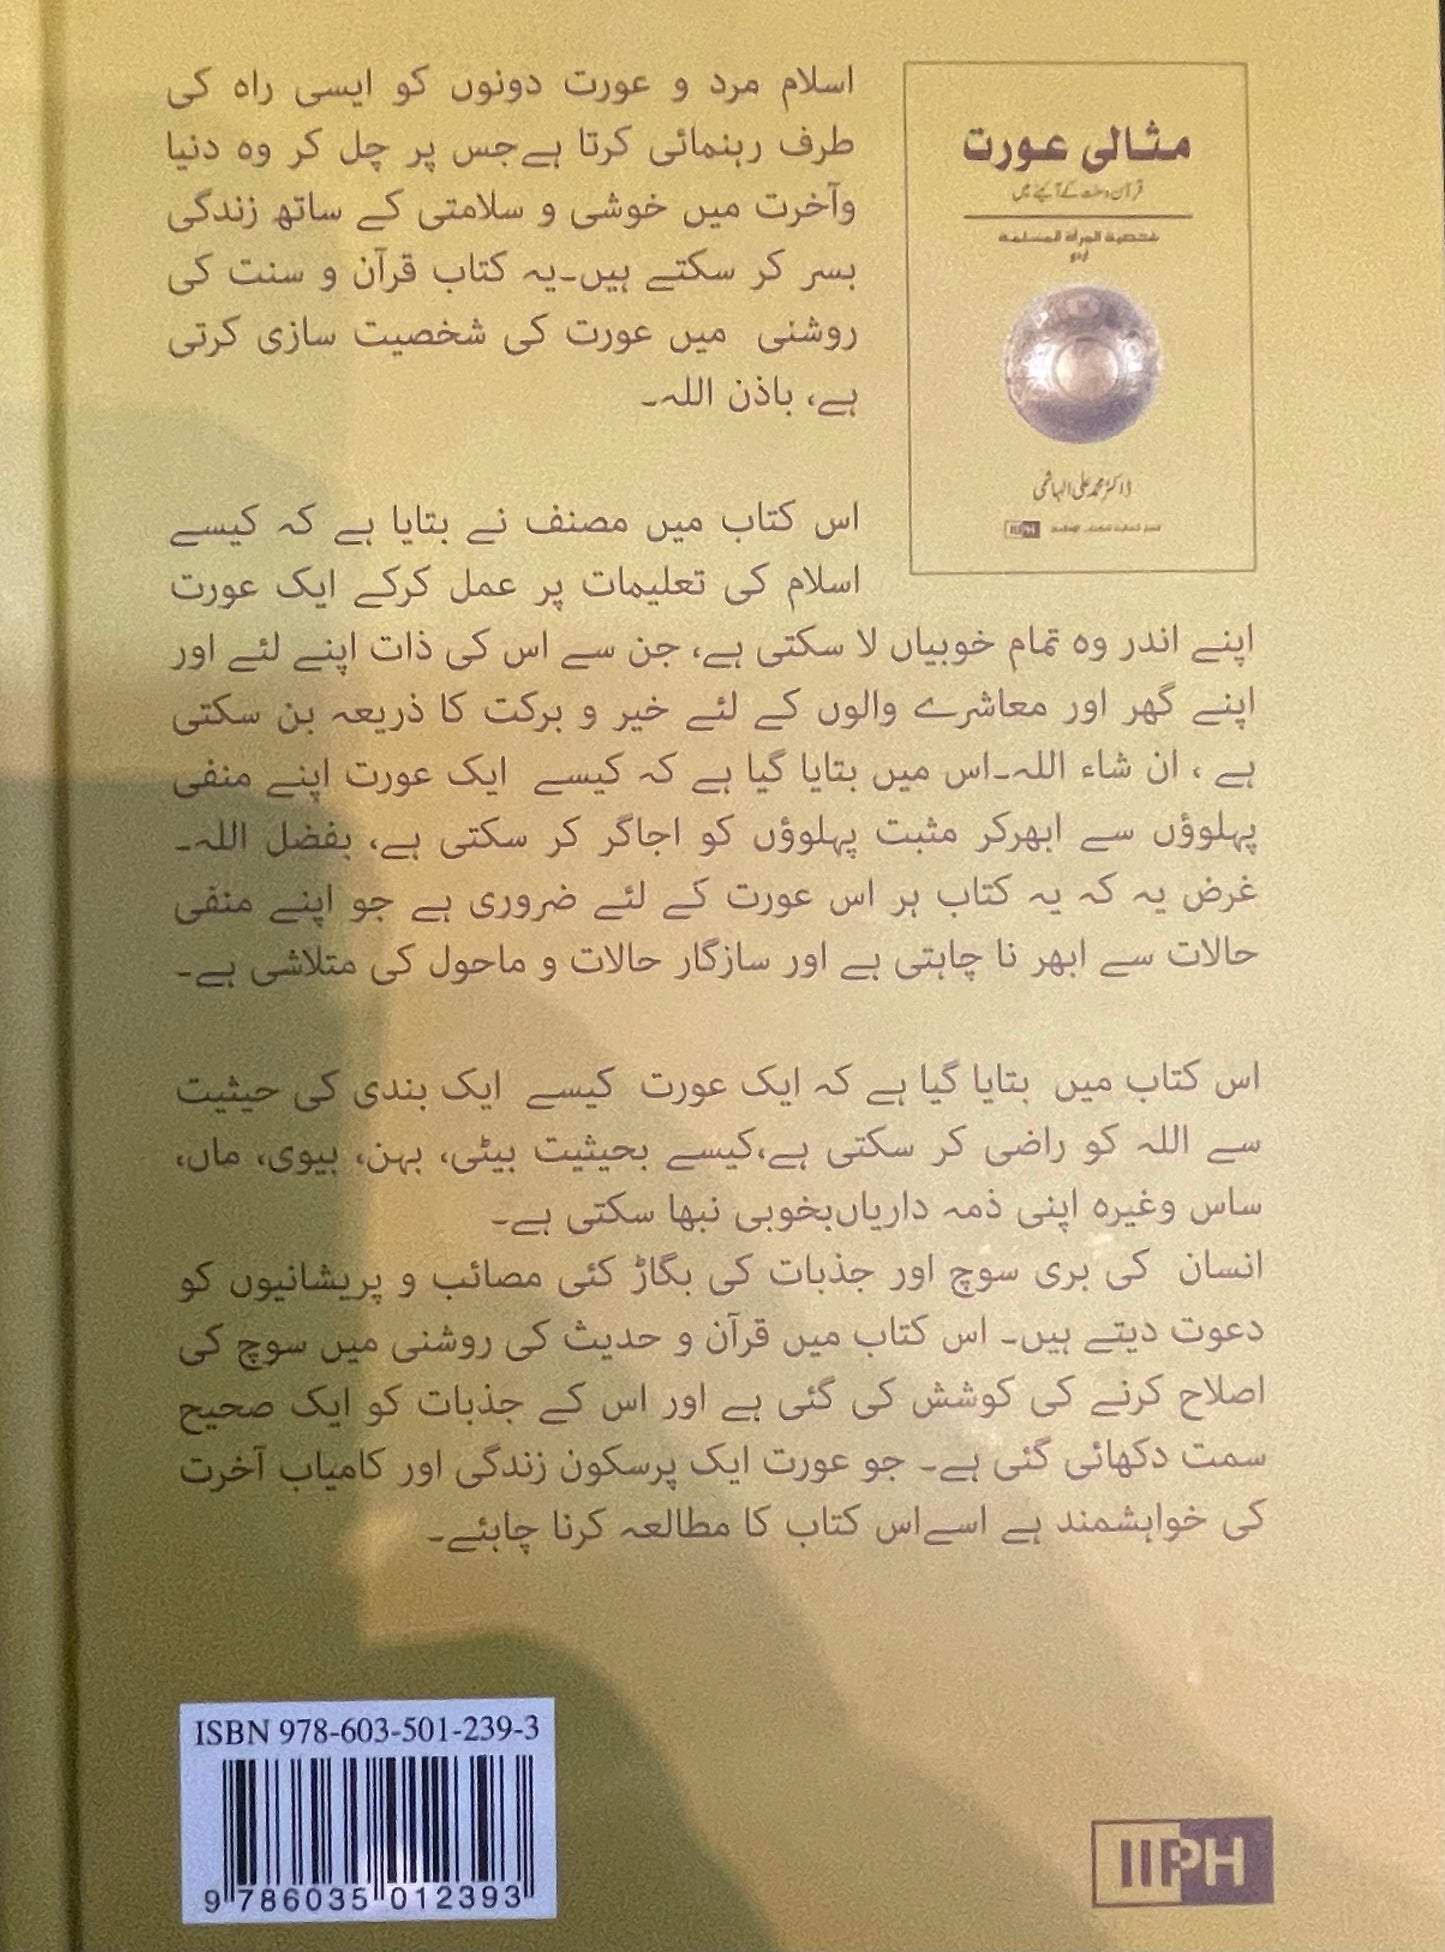 مثالی عورت
قرآن و سنت کے آئینے میں
شخصية المرأة المسلمة
اردو
ڈاکٹر محمد علی الہاشمی
IIPH
اسلام مرد و عورت دونوں کو ایسی راہ کی
طرف رہنمائی کرتا ہےجس پر چل کر وہ دنیا
وآخرت میں خوشی و سلامتی کے ساتھ زندگی
بسر کر سکتے ہیں۔یہ کتاب قرآن و سنت کی
روشنی میں عورت کی شخصیت سازی کرتی
ہے، باذن اللہ۔
اس کتاب میں مصنف نے بتایا ہے کہ کیسے
اسلام کی تعلیمات پر عمل کرکے ایک عورت
اپنے اندر وہ تمام خوبیاں لا سکتی ہے، جن سے اس کی ذات اپنے لئے اور
اپنے گھر اور معاشرے والوں کے لئے خیر و برکت کا ذریعہ بن سکتی
ہے ، ان شاء اللہ۔اس میں بتایا گیا ہے کہ کیسے ایک عورت اپنے منفی
پہلوؤں سے ابھرکر مثبت پہلوؤں کو اجاگر کر سکتی ہے، بفضل اللہ۔
غرض یہ کہ یہ کتاب ہر اس عورت کے لئے ضروری ہے جو اپنے منفی
حالات سے ابھر نا چاہتی ہے اور سازگار حالات و ماحول کی متلاشی ہے۔
اس کتاب میں بتایا گیا ہے کہ ایک عورت کیسے ایک بندی کی حیثیت
سے اللہ کو راضی کر سکتی ہے،کیسے بحیثیت بیٹی، بہن، بیوی، ماں،
ساس وغیرہ اپنی ذمہ داریاںبخوبی نبھا سکتی ہے۔
انسان کی بری سوچ اور جذبات کی بگاڑ کئی مصائب و پریشانیوں کو
دعوت دیتے ہیں۔ اس کتاب میں قرآن و حدیث کی روشنی میں سوچ کی
اصلاح کرنے کی کوشش کی گئی ہے اور اس کے جذبات کو ایک صحیح
سمت دکھائی گئی ہے۔ جو عورت ایک پرسکون زندگی اور کامیاب آخرت
کی خواہشمند ہے اسےاس کتاب کا مطالعہ کرنا چاہئے۔
ISBN 978-603-501-239-3
9 786035 012393
IIPH